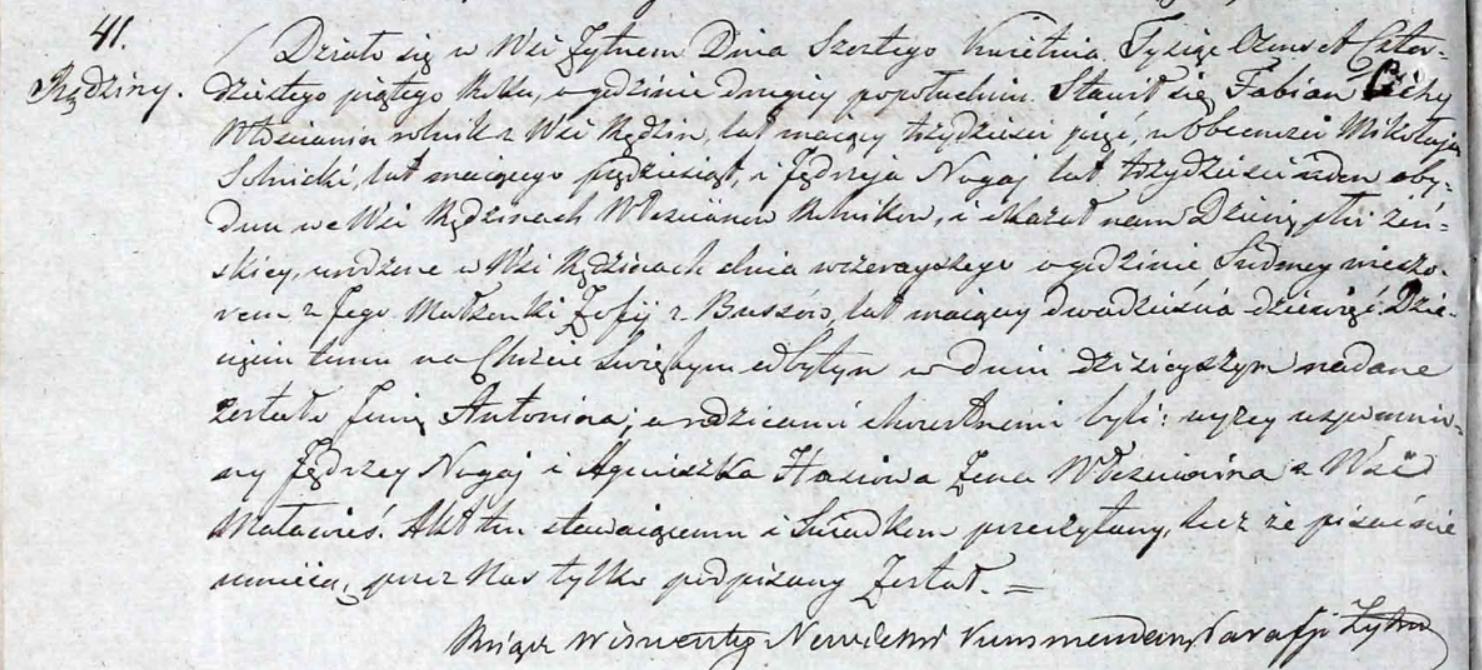 41.
Rędziny.
Działo się w Wsi Żytnem Dnia Szóstego Kwietnia Tysiąc Ośmset Czter=
dziestego piątego Roku, o godzinie drugiey popołudniu. Stawił się Fabian Cichy
Włościanin rolnik z Wsi Rędzin, lat maiący trzydzieści pięć, w Obecności Mikołaja
Solnicki, lat maiącego pięćdziesiąt, i Jędrzeja Nogaj lat trzydzieści ieden oby=
dwu we Wsi Rędzinach Włościanow Rolnikow, i okazał nam Dziecię płci żeń=
skiey, urodzone w Wsi Rędzinach dnia wczorayszego o godzinie Siódmey wieczo=
rem z Jego Małżonki Zofij z Bussów, lat maiącey dwadzieścia dziewięć. Dzie=
cięciu temu na Chrzcie Świętym odbytym w dniu dzisieyszym nadane
zostało Jmię Antonina; a rodzicami chrzestnemi byli: wyżey wspomnio=
ny Jędrzey Nogaj i Agnieszka żona Włościanina z Wsi
Maławieś. Akt ten stawaiącemu i Świadkom przeczytany, lecz że pisać nie
umieią, przez Nas tylko podpisany Został. =
Xiądz Wincenty Parafji Żytno